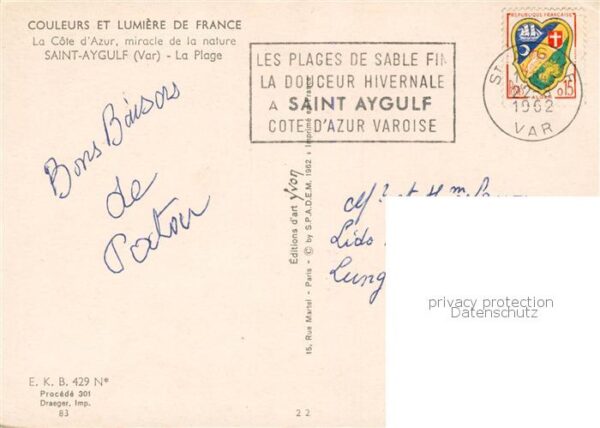 COULEURS ET LUMIÈRE DE FRANCE
La Côte d'Azur, miracle de la nature
SAINT-AYGULF (Var) - La Plage
LES PLAGES DE SABLE FIN
LA DOUCEUR HIVERNALE
A SAINT AYGULF
COTE D'AZUR VAROISE
REPUBLIQUE FRANÇAISE
0.15
1962
VAR
Bons Baisers
de
Éditions d'art Yvon
15, Rue Martel - Paris - © by S.P.A.D.E.M. 1962 - Imprimé en France
Lido
Lung
privacy protection
Datenschutz
E. K. B. 429 Nº
Procédé 301
Draeger, Imp.
83
22